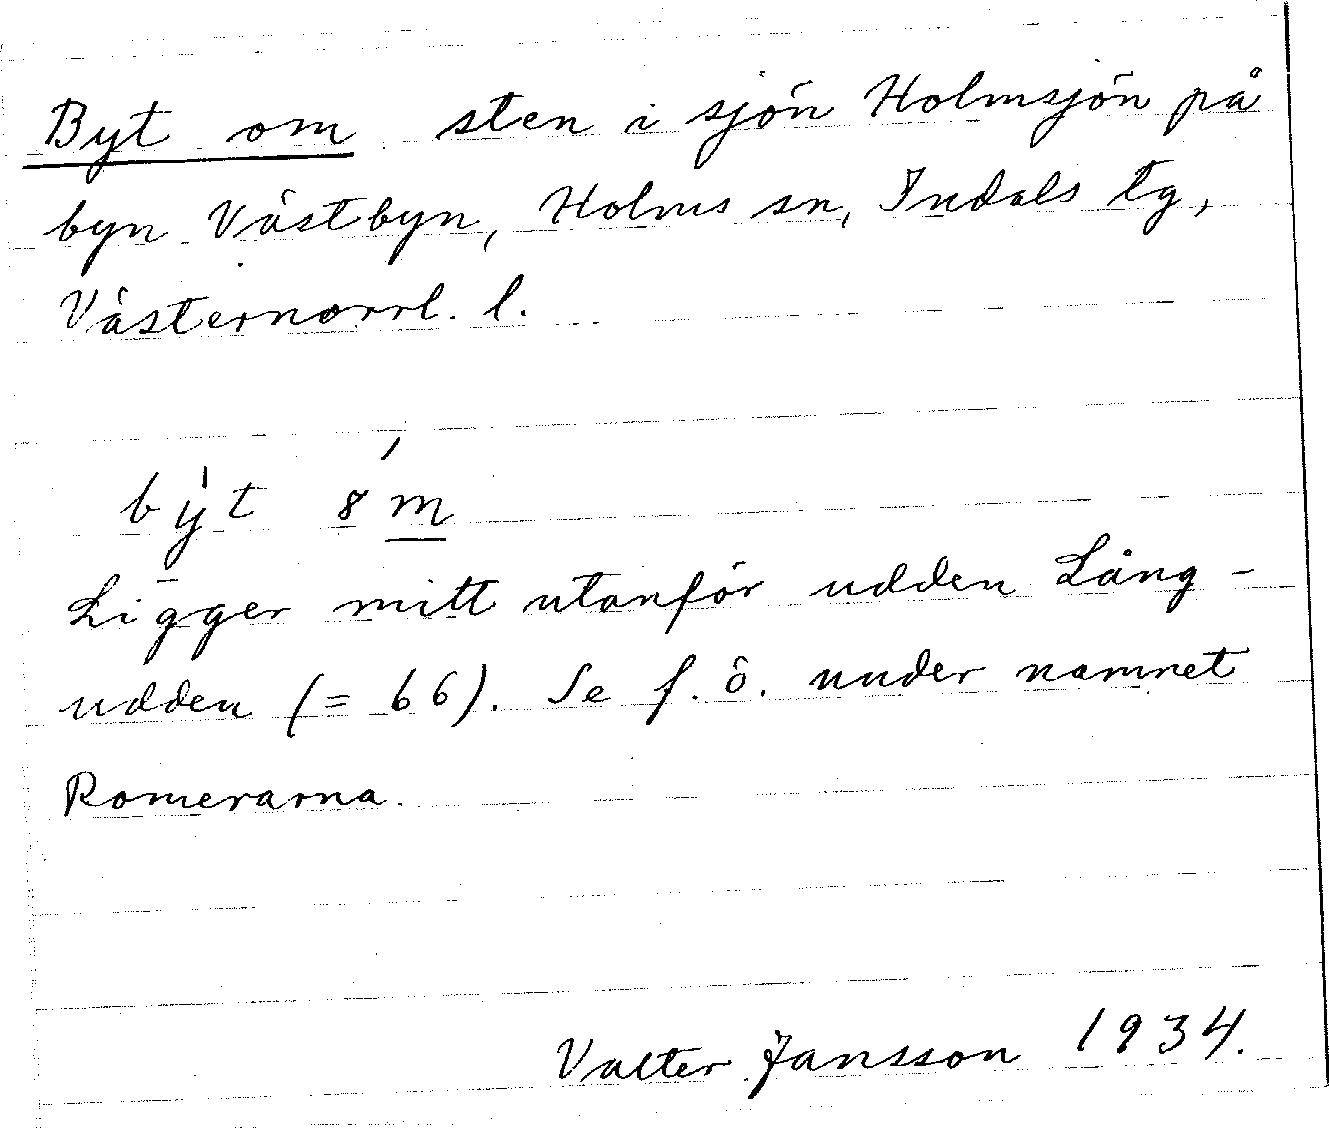 Byt om sten i sjön Holmsjön på
byn Västbyn, Holms sn, Indals tg,
Västernorrl. l.
by̍t 8 ḿ
Ligger mitt utanför udden Lång-
udden (= 66). Se f. ö. under namnet
Romerarna.
Valter Jansson 1934.